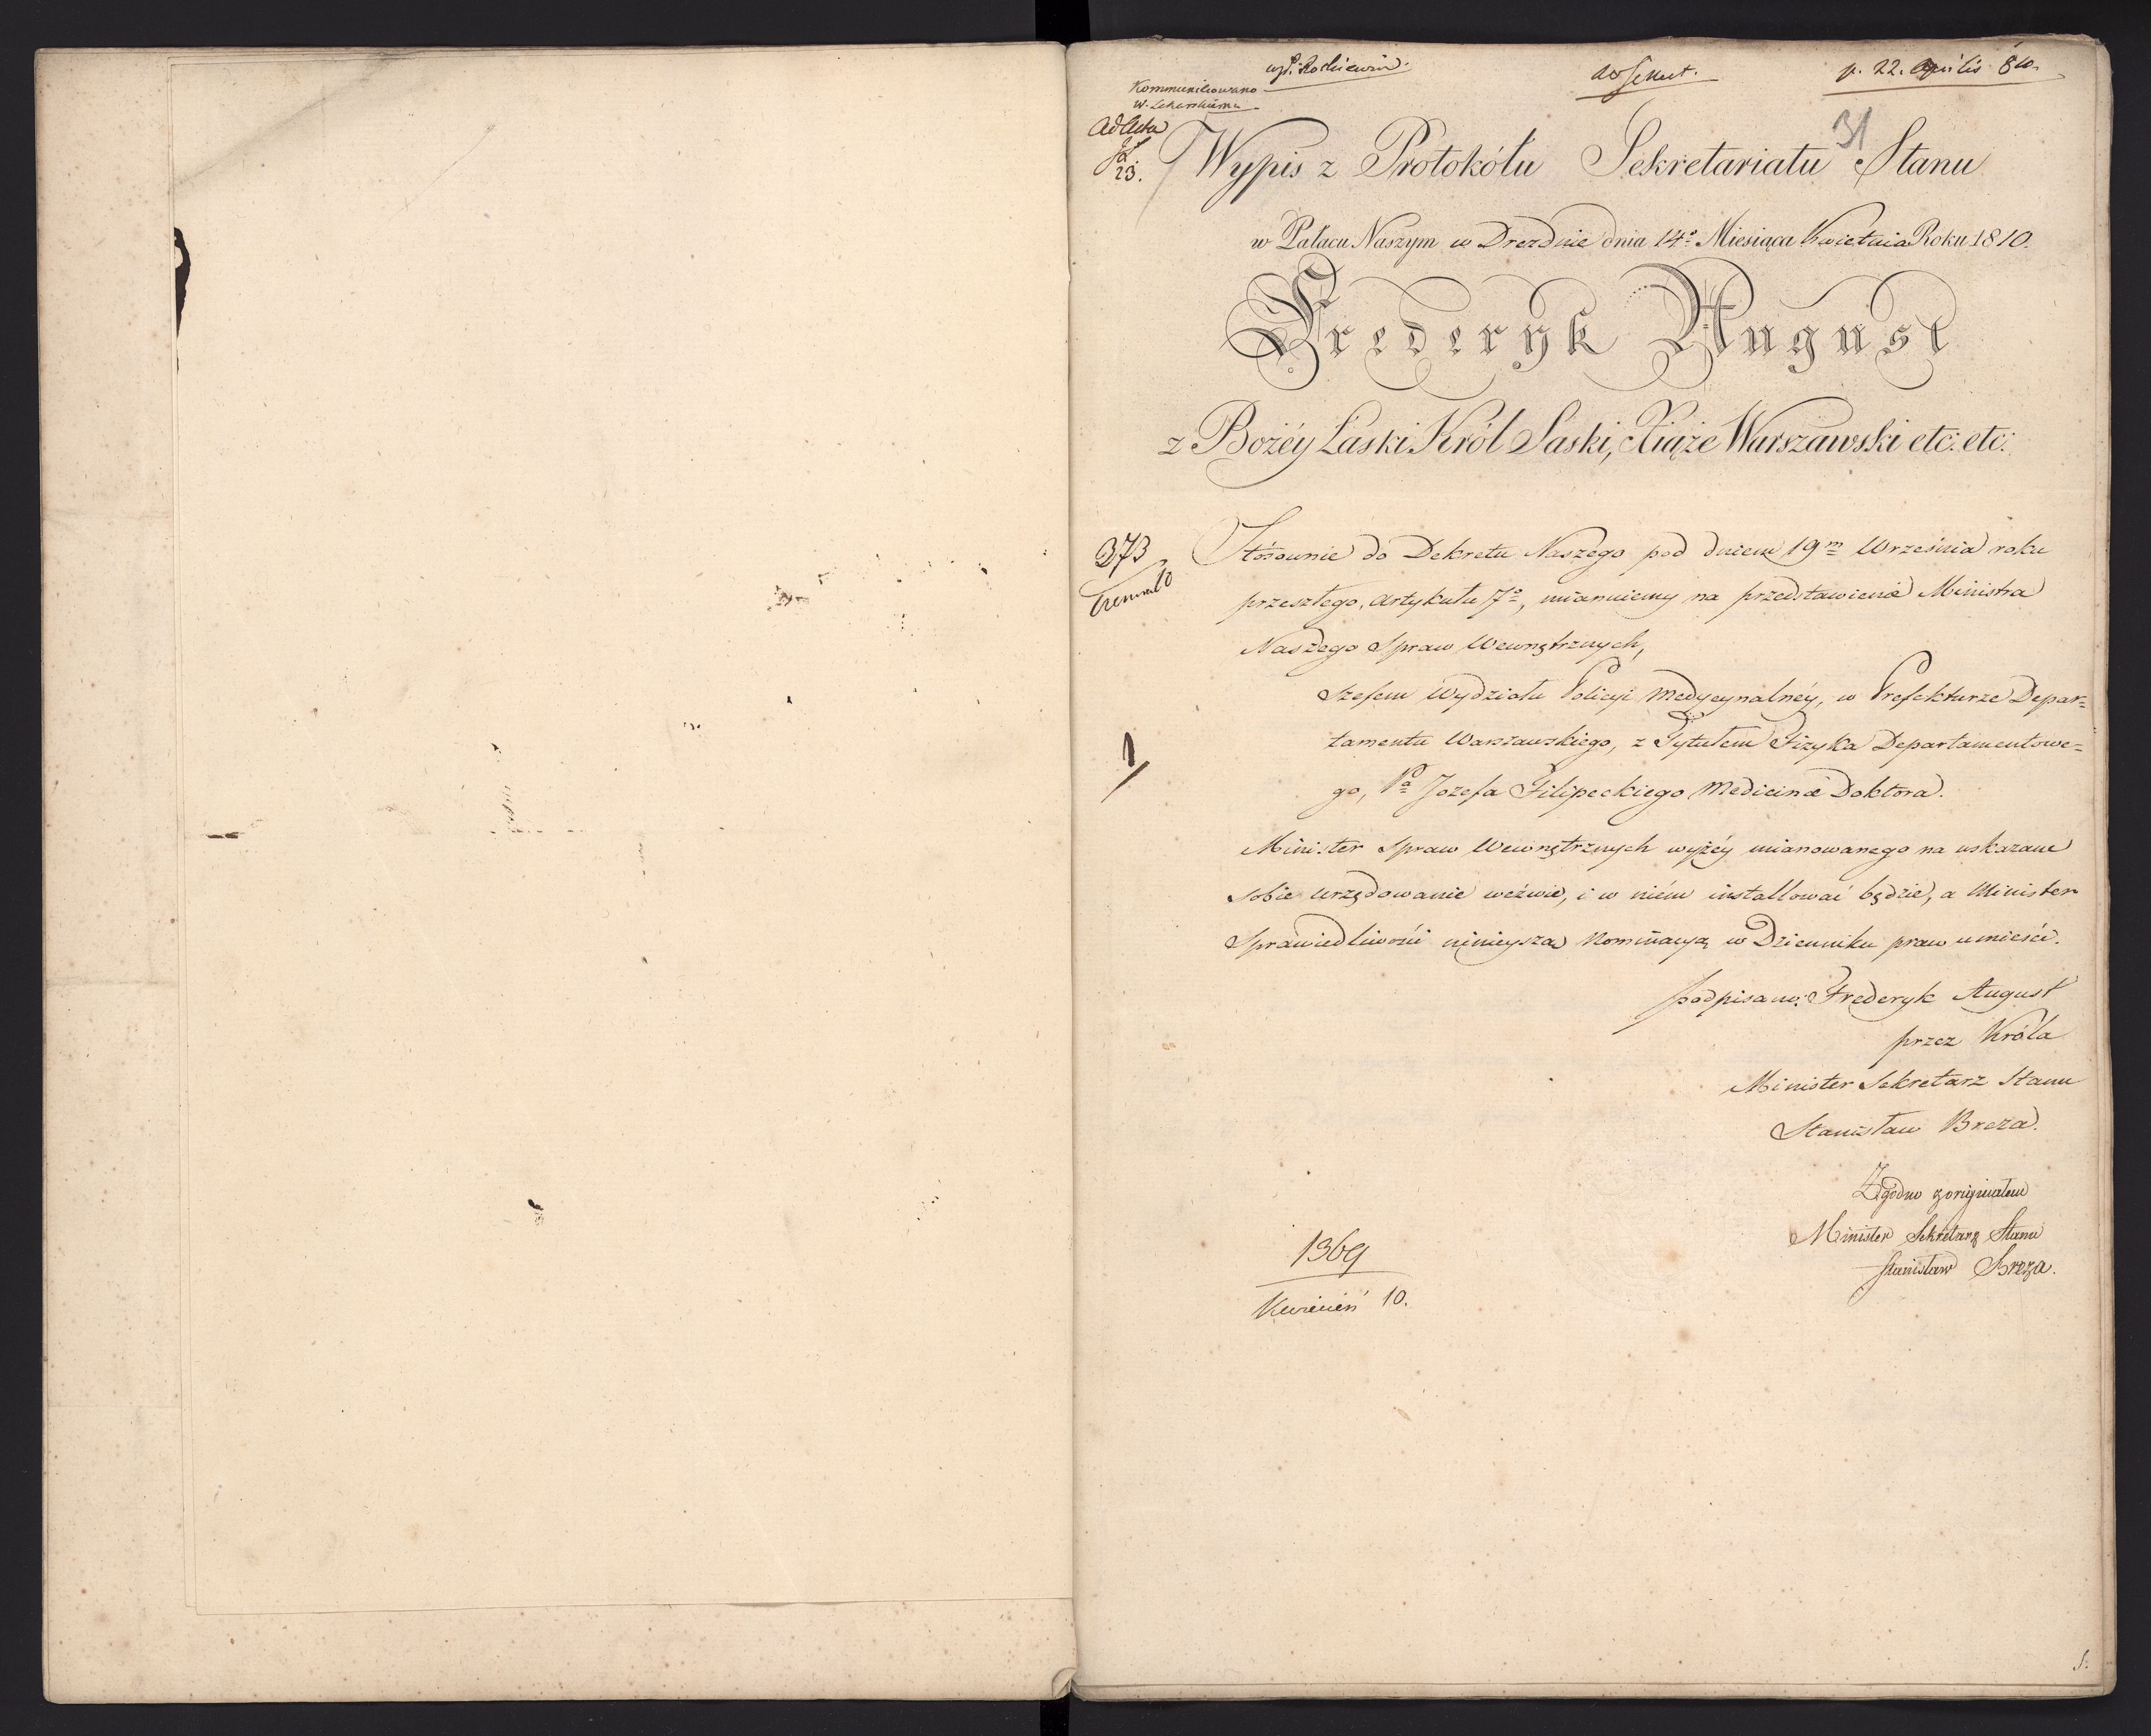 p. 22. Aprilis 810.
Kommunikowano
W. Lekarskiemu
Ad Acta
23.
31
Wypis z Protokółu Sekretariatu Stanu
w Pałacu Naszym w Dreznie dnia 14º Miesiąca Kwietnia Roku 1810.
Frederyk August
z Bożéy Łaski Król Saski, Xiąże Warszawski etc: etc:
373
Stósownie do Dekretu Naszego pod dniem 19m Września roku
przeszłego, artykułu 7º, mianuiemy na przedstawienie Ministra
Naszego Spraw Wewnętrznych,
Szefem Wydziału Policyi Medycynalnéy, w Prefekturze Depar=
1
tamentu Warszawskiego, z Tytułem Fizyka Departamentowe=
go, Pa Jozefa Filipeckiego Medicinæ Doktora.
Minister Spraw Wewnętrznych wyżéy mianowanego na wskazane
sobie urzędowanie wezwie, i w niém installować będzie, a Minister
Sprawiedliwości ninieysza Nominacyą w Dzienniku praw umieści.
podpisano: Frederyk August
przez Króla
Minister Sekretarz Stanu
Stanisław Breza.
Zgodno z oryginałem
Minister Sekretarz Stanu
Stanisław Breza.
1369
Kwiecień 10.